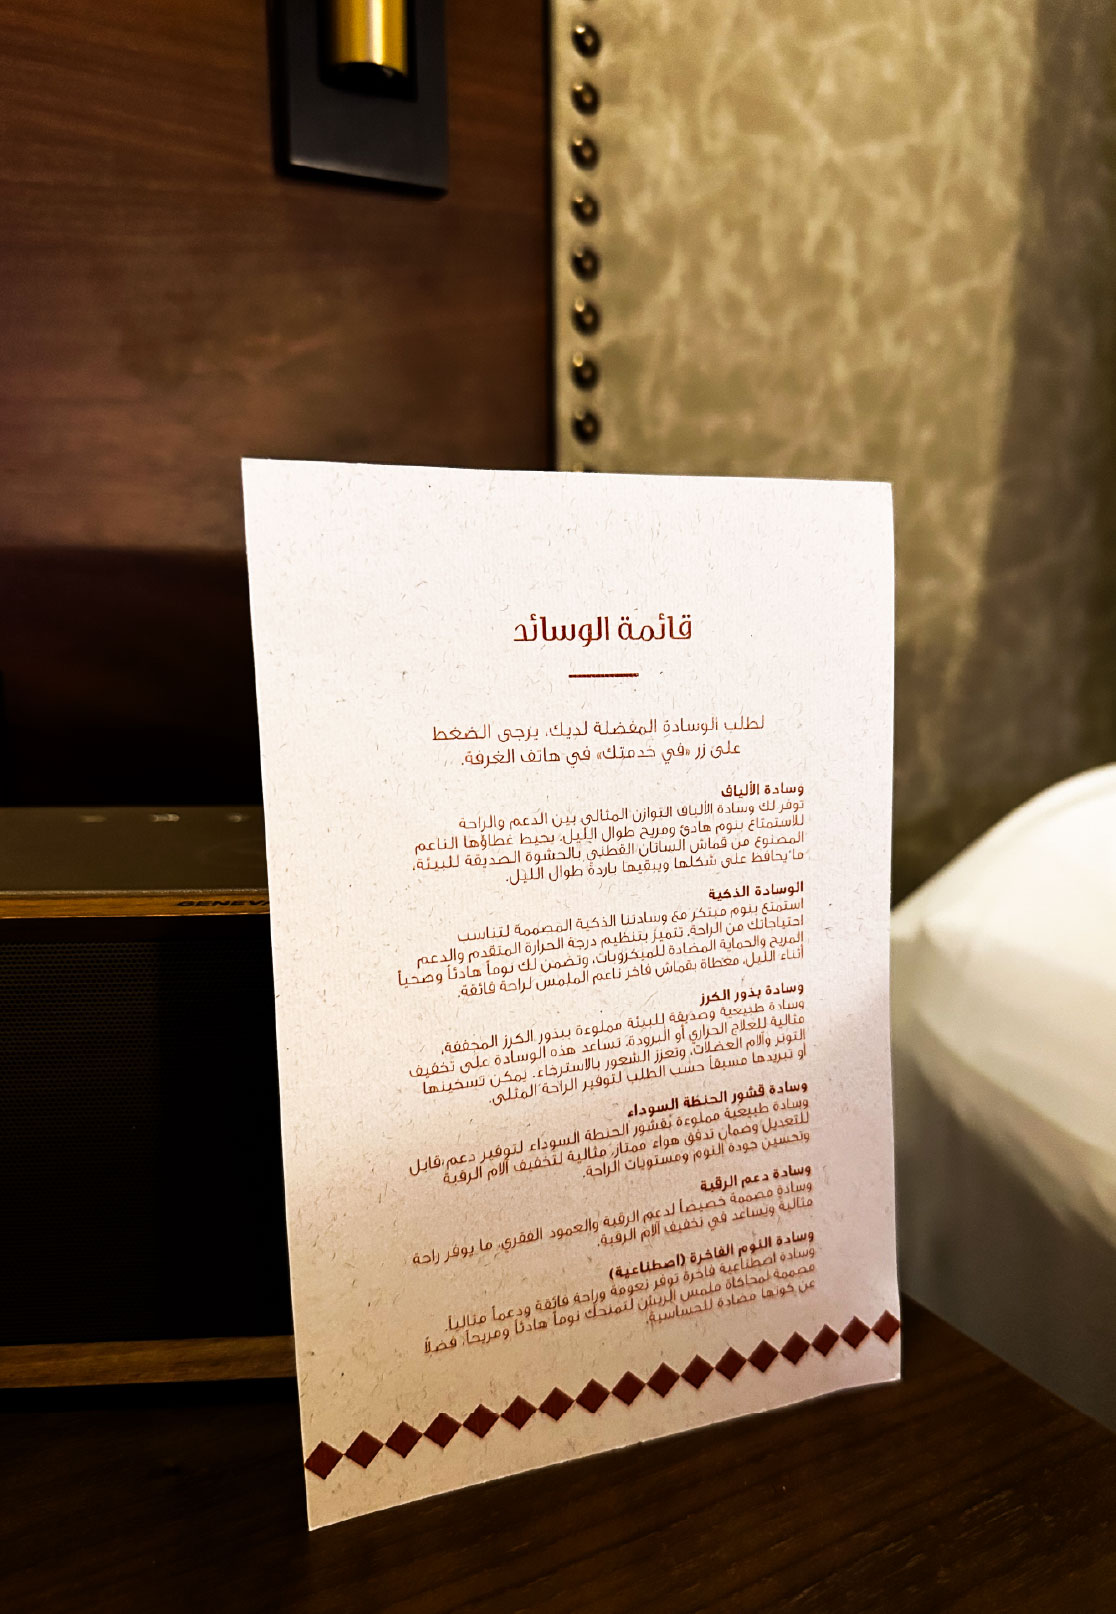 قائمة الوسائد
لطلب الوسادة المفضلة لديك، يرجى الضغط
على زر «في خدمتك» في هاتف الغرفة.
وسادة الألياف
توفر لك وسادة الألياف التوازن المثالي بين الدعم والراحة
للاستمتاع بنوم هادئ ومريح طوال الليل. يحيط غطاؤها الناعم
المصنوع من قماش الساتان القطني بالحشوة الصديقة للبيئة،
ما يحافظ على شكلها ويبقيها باردة طوال الليل.
الوسادة الذكية
استمتع بنوم مبتكر مع وسادتنا الذكية المصممة لتناسب
احتياجاتك من الراحة. تتميز بتنظيم درجة الحرارة المتقدم والدعم
المريح والحماية المضادة للميكروبات، وتضمن لك نوماً هادئاً وصحياً
أثناء الليل. مغطاة بقماش فاخر ناعم الملمس لراحة فائقة.
وسادة بذور الكرز
وسادة طبيعية وصديقة للبيئة مملوءة ببذور الكرز المجففة،
مثالية للعلاج الحراري أو البرودة. تساعد هذه الوسادة على تخفيف
التوتر وآلام العضلات، وتعزز الشعور بالاسترخاء. يمكن تسخينها
أو تبريدها مسبقاً حسب الطلب لتوفير الراحة المثلى.
وسادة قشور الحنطة السوداء
وسادة طبيعية مملوءة بقشور الحنطة السوداء لتوفير دعم قابل
للتعديل وضمان تدفق هواء ممتاز. مثالية لتخفيف آلام الرقبة
وتحسين جودة النوم ومستويات الراحة.
وسادة دعم الرقبة
وسادة مصممة خصيصاً لدعم الرقبة والعمود الفقري، ما يوفر راحة
مثالية ويساعد في تخفيف آلام الرقبة.
وسادة النوم الفاخرة (اصطناعية)
وسادة اصطناعية فاخرة توفر نعومة وراحة فائقة ودعماً مثالياً.
مصممة لمحاكاة ملمس الريش لتمنحك نوماً هادئاً ومريحاً، فضلاً
عن كونها مضادة للحساسية.
GENEVA